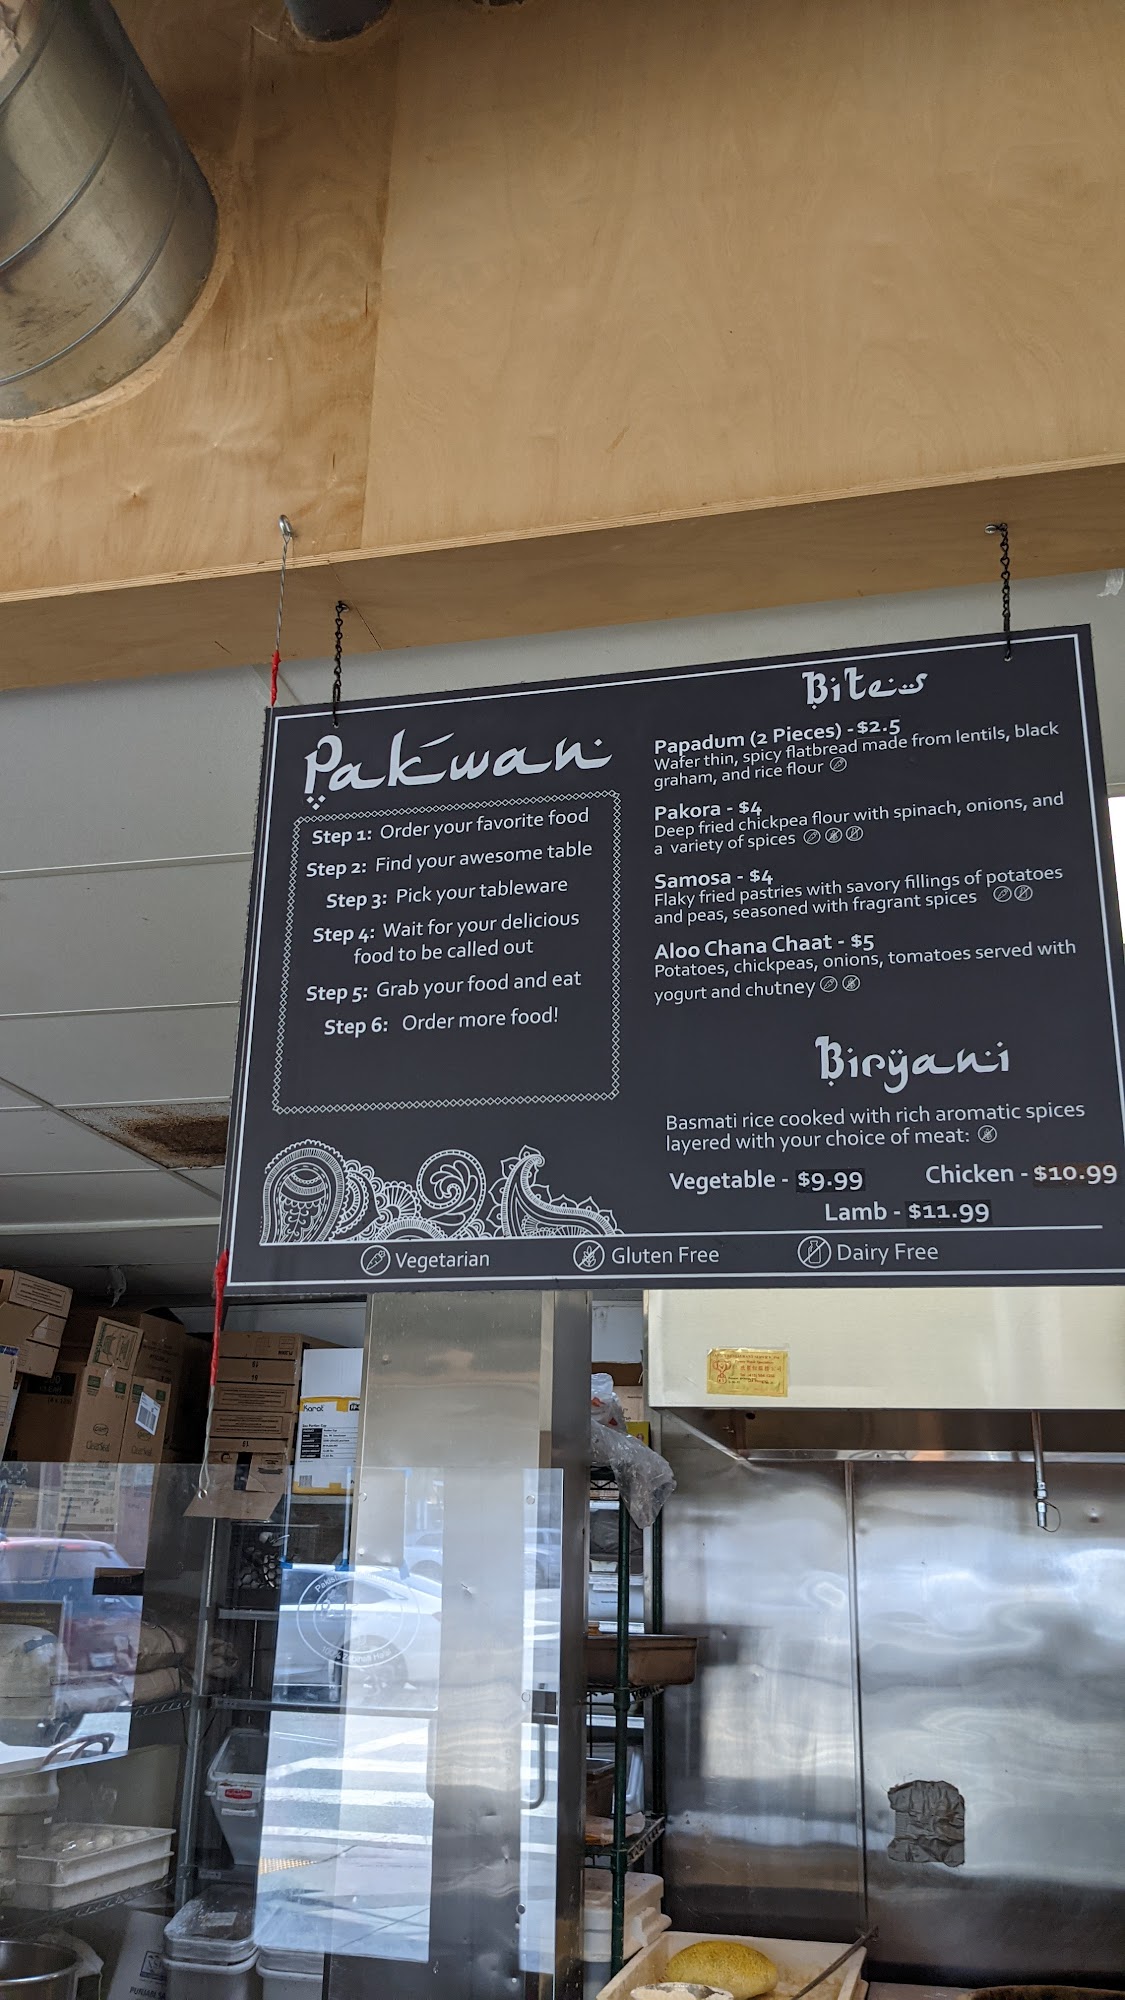 Pakwan
Step 1: Order your favorite food
Step 2: Find your awesome table
Step 3: Pick your tableware
Step 4: Wait for your delicious
food to be called out
Step 5: Grab your food and eat
Step 6: Order more food!
Bites
Papadum (2 Pieces) - $2.5
Wafer thin, spicy flatbread made from lentils, black
graham, and rice flour
Pakora - $4
Deep fried chickpea flour with spinach, onions, and
a variety of spices
Samosa - $4
Flaky fried pastries with savory fillings of potatoes
and peas, seasoned with fragrant spices
Aloo Chana Chaat - $5
Potatoes, chickpeas, onions, tomatoes served with
yogurt and chutney
Biryani
Basmati rice cooked with rich aromatic spices
layered with your choice of meat:
Vegetable - $9.99
Chicken - $10.99
Lamb - $11.99
Vegetarian
Gluten Free
Dairy Free
Karat